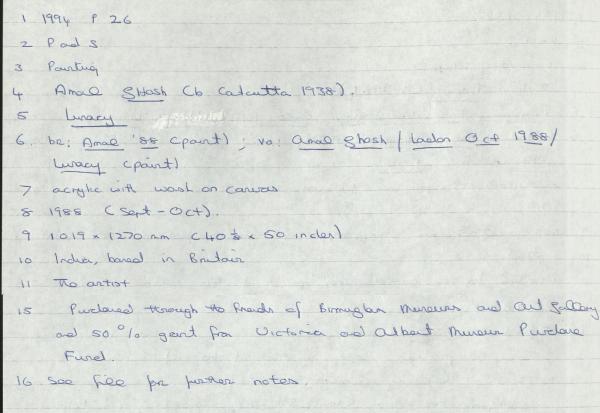 1 1994 P 26
2 P and S
3 Painting
4 Amal GHOSH (b. Calcutta 1938).
5 Lunacy
6. bc: Amal '88 (paint) ; vo: Amal Ghosh / London Oct 1988/
Lunacy (paint)
7 acrylic with wash on canvas
8 1988 (Sept - Oct).
9 1019 x 1270 mm (40 1/8 x 50 inches)
10 India, based in Britain
11 The artist
15 Purchased through the Friends of Birmingham Museums and Art Gallery
and 50% grant from Victoria and Albert Museum Purchase
Fund.
16 See file for further notes.